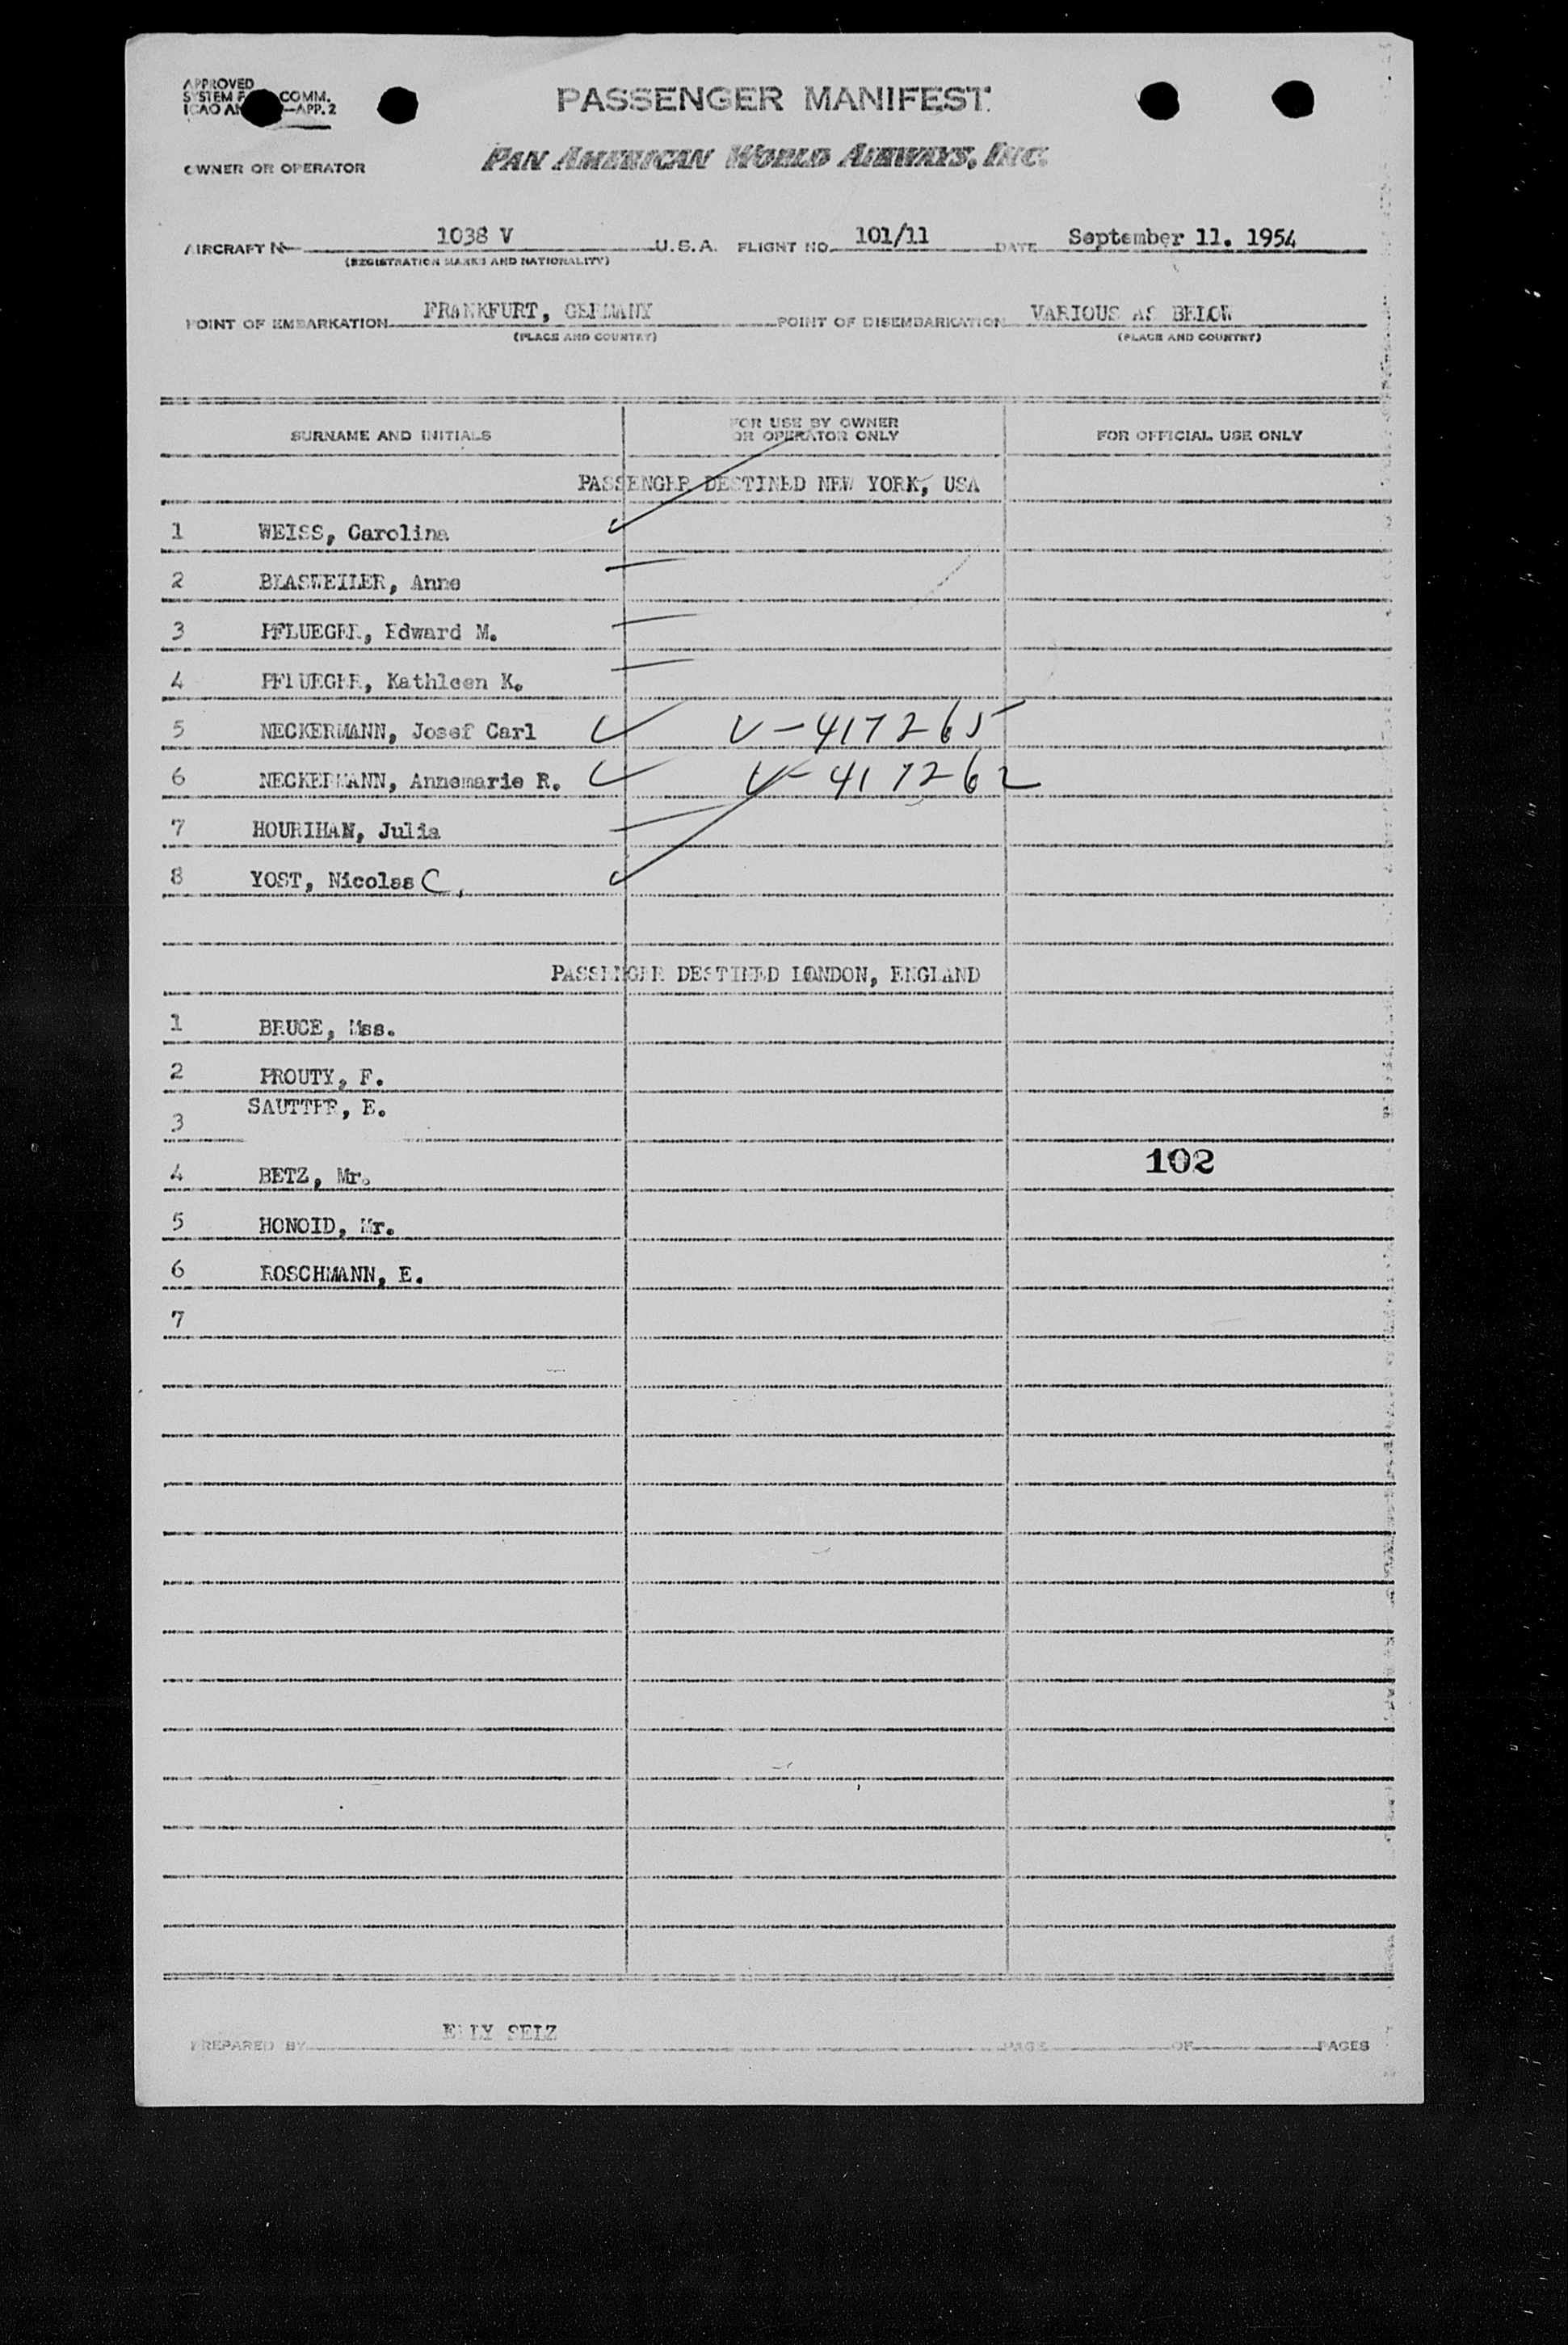 APPROVED
SYSTEM COMM.
ICAO —APP. 2
PASSENGER MANIFEST
OWNER OR OPERATOR PAN AMERICAN WORLD AIRWAYS, INC.
AIRCRAFT N 1038 V U. S. A. FLIGHT NO. 101/11 DATE September 11. 1954
(REGISTRATION MARKS AND NATIONALITY)
POINT OF EMBARKATION FRANKFURT, GERMANY POINT OF DISEMBARKATION VARIOUS AS BELOW
(PLACE AND COUNTRY) (PLACE AND COUNTRY)
SURNAME AND INITIALS FOR USE BY OWNER OR OPERATOR ONLY FOR OFFICIAL USE ONLY
PASSENGER DESTINED NEW YORK, USA
1 WEISS, Carolina
2 BLASWEILER, Anne
3 PFLUEGER, Edward M.
4 PFLUEGER, Kathleen K.
5 NECKERMANN, Josef Carl V-417265
6 NECKERMANN, Annemarie R. V-417262
7 HOURIHAN, Julia
8 YOST, Nicolas C.
PASSENGER DESTINED LONDON, ENGLAND
1 BRUCE, Mss.
2 PROUTY, F.
3 SAUTTER, E.
102
4 BETZ, Mr.
5 HONOID, Mr.
6 ROSCHMANN, E.
7
PREPARED BY ELLY SELZ PAGE OF PAGES